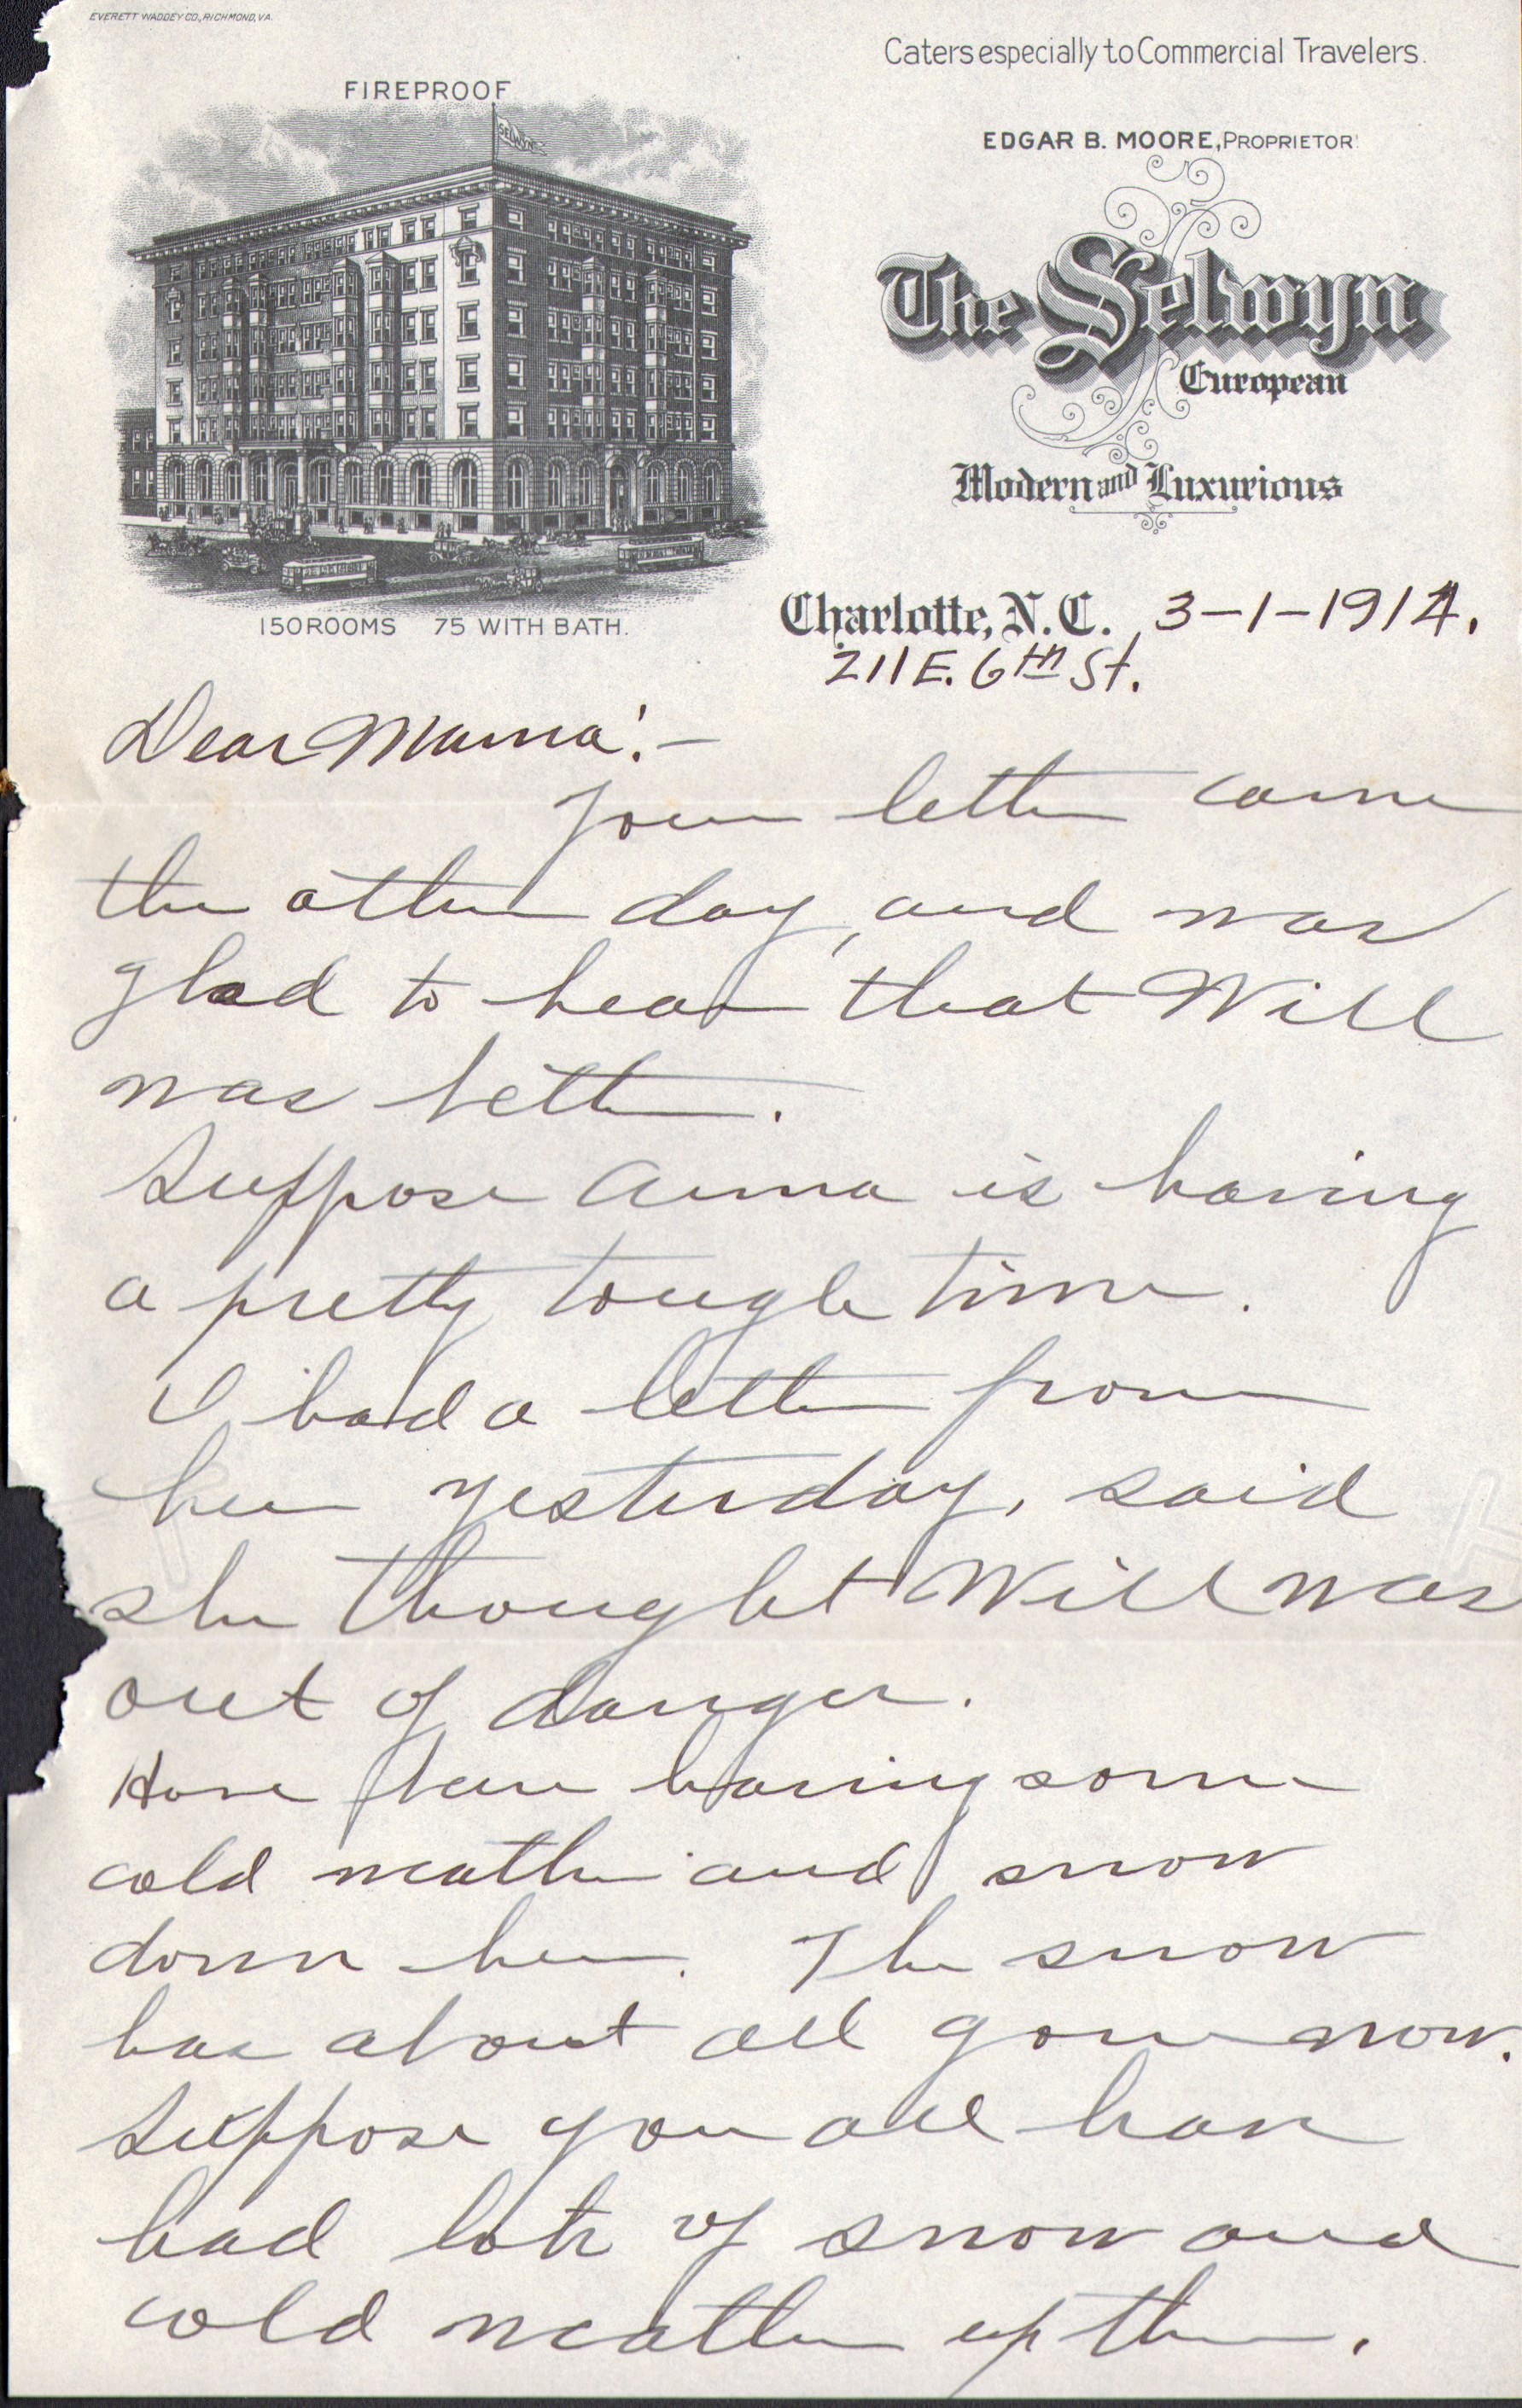 EVERETT WADDEY CO., RICHMOND, VA.
Caters especially to Commercial Travelers.
FIREPROOF
SELWYN
EDGAR B. MOORE, PROPRIETOR.
The Selwyn
European
Modern and Luxurious
150 ROOMS 75 WITH BATH.
Charlotte, N.C. 3-1-1914.
211 E. 6th St.
Dear Mama:-
Your letter came
the other day, and was
glad to hear that Will
was better.
Suppose Anna is having
a pretty tough time.
I had a letter from
her yesterday, said
she thought Will was
out of danger.
Have been having some
cold weather and snow
down here. The snow
has about all gone now.
Suppose you all have
had lots of snow and
cold weather up there.